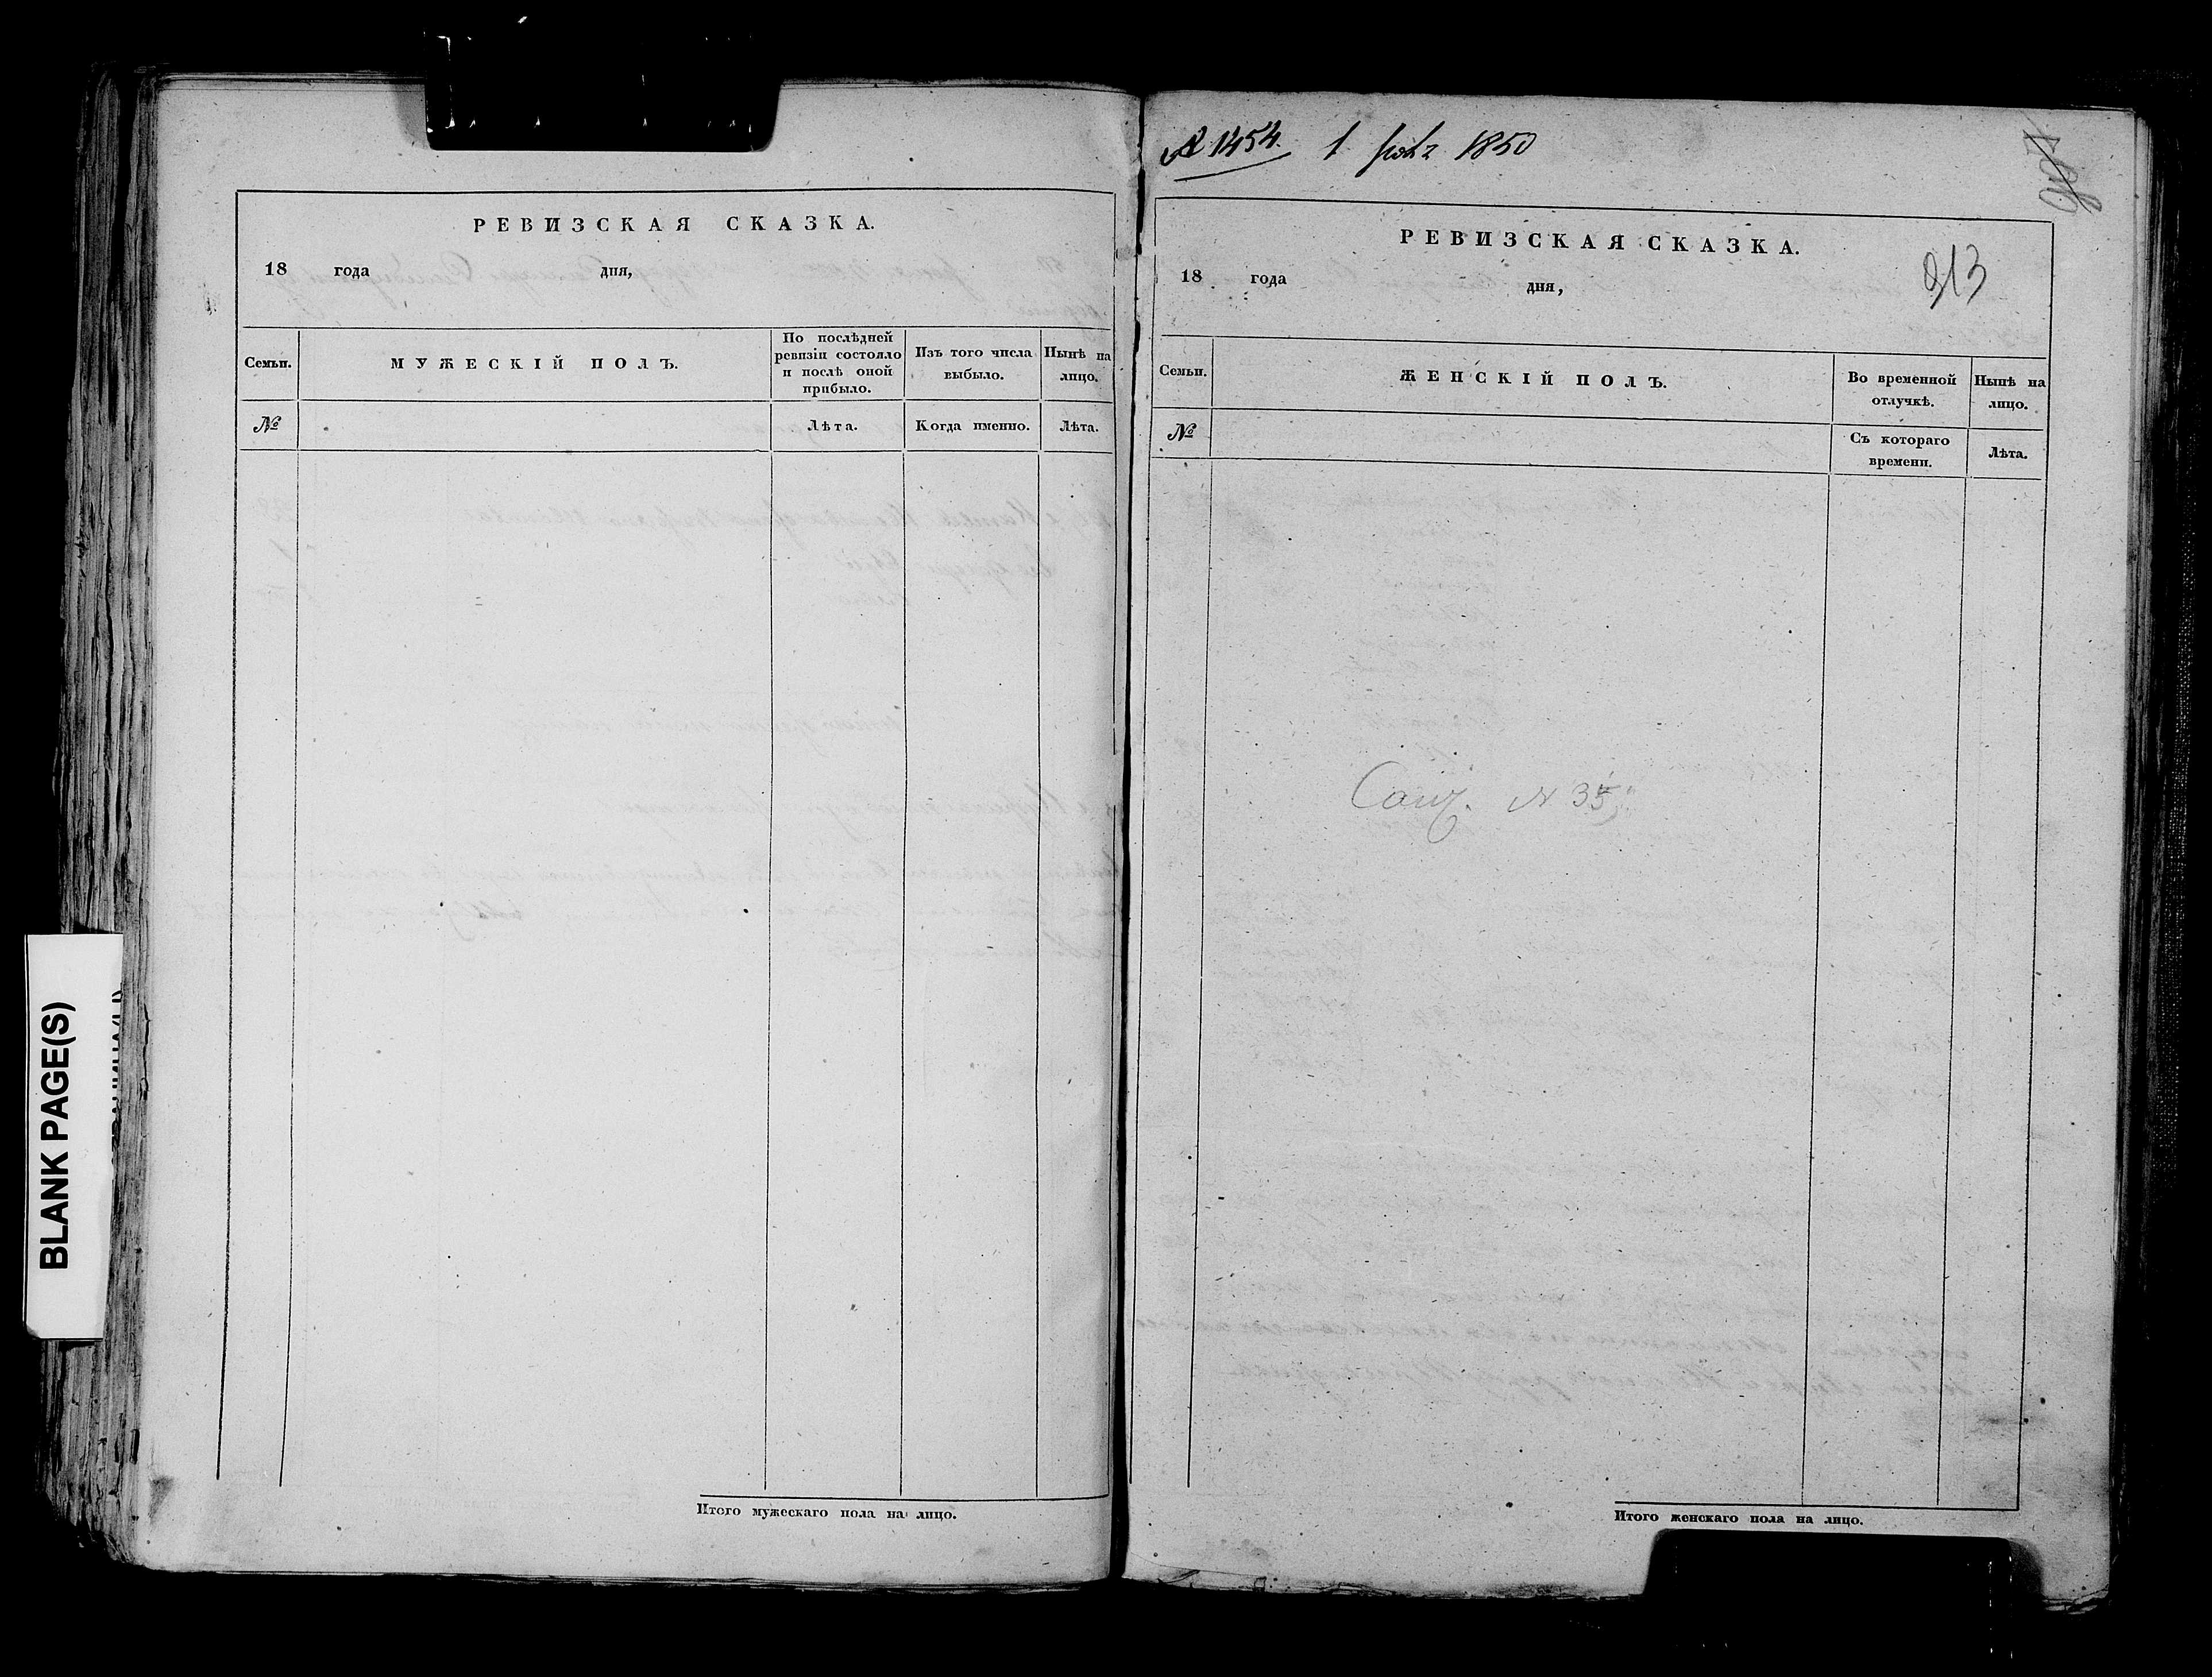 РЕВИЗСКАЯ СКАЗКА.
18 года дня,
Семьи.
МУЖЕСКІЙ ПОЛЪ.
По послѣдней
ревизіи состояло
и послѣ оной
прибыло.
Изъ того числа
выбыло.
Нынѣ на
лицо.
№
Лѣта.
Когда именно.
Лѣта.
Итого мужескаго пола на лицо.
№ 1454. 1 1850
РЕВИЗСКАЯ СКАЗКА.
913
18 года дня,
Семьи.
ЖЕНСКІЙ ПОЛЪ.
Во временной
отлучкѣ.
Нынѣ на
лицо.
№
Съ котораго
времени.
Лѣта.
№ 35
Итого женскаго пола на лицо.
BLANK PAGE(S)